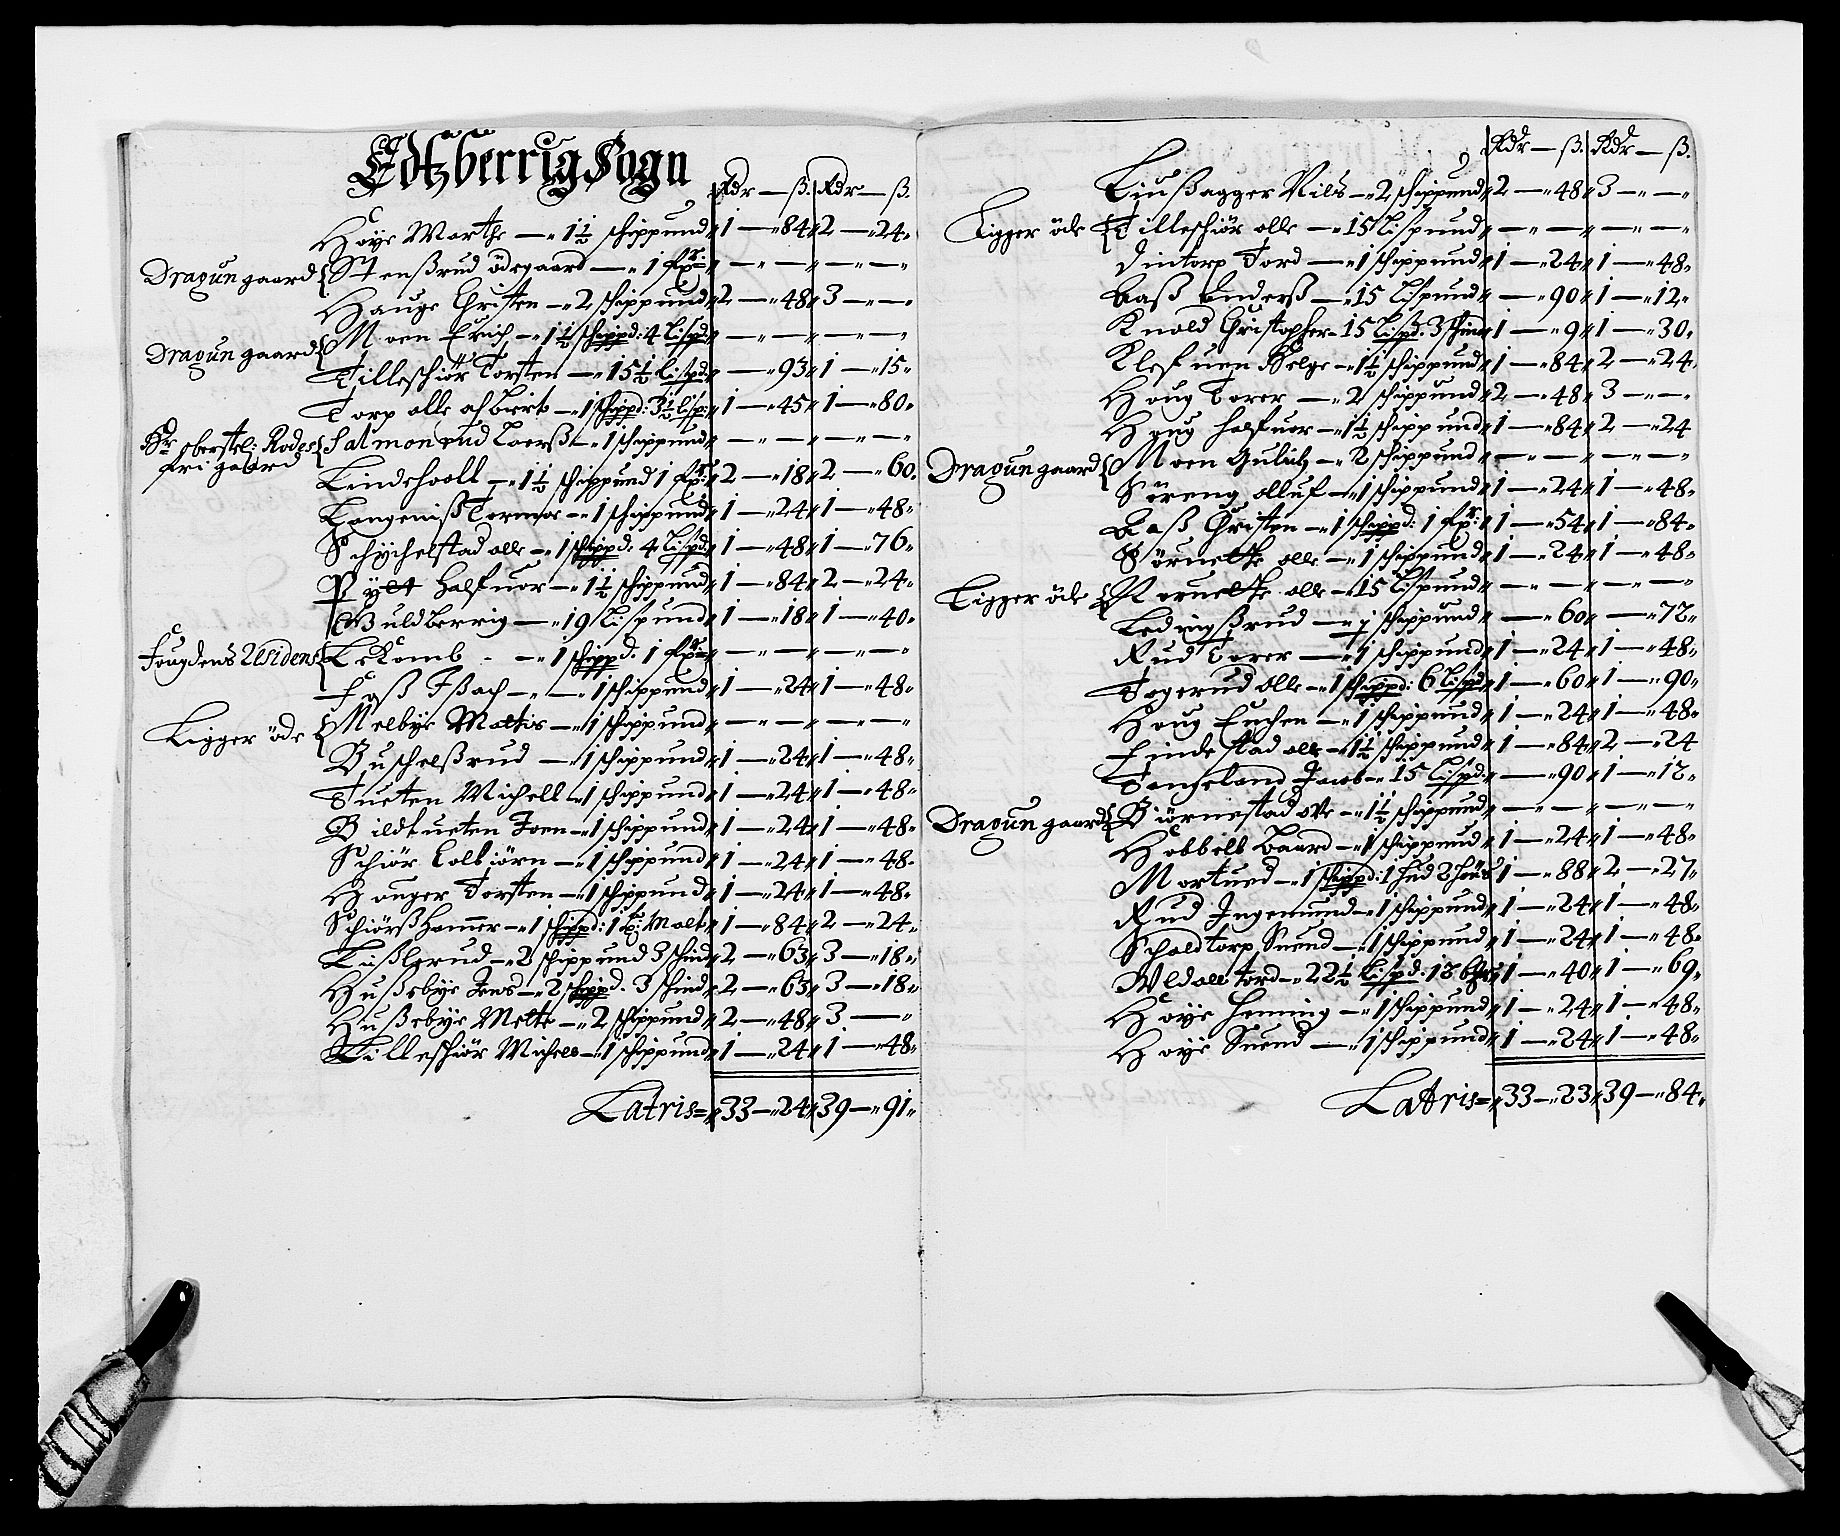 Edtzberrig Sogn
Rdr — ß. Rdr — ß.
Høye Marthe — 1½ schippund 1 — 84 2 — 24
Dragun gaard Stenßrud ödegaard — 1 — — — —
Hauge Christen — 2 schippund 2 — 48 3 — —
Dragun gaard Moen Erich — 1½ schippd: 4 Lispd: — — — —
Tilleschiör Torsten — 15½ Lispd: — 93 1 — 15
Torp olle — 1 schippd: 3½ Lisp: 1 — 45 1 — 80
Hr oberstel: Rodes fri gaard Salmonrud Laerß — 1 schippund — — — —
Lindeholl — 1½ schippund 1 2 — 18 2 — 60
Langeniß Tormoe — 1 schippund 1 — 24 1 — 48
Schyhelstad olle — 1 schippd: 4 Lispd: 1 — 48 1 — 76
Pylt Halfuor — 1½ schippund 1 — 84 2 — 24
Guldberrig — 19 Lispund 1 — 18 1 — 40
Fougdens Uldens Lekomb — 1 schippd: 1 — — — —
Faß Ißach — 1 schippund 1 — 24 1 — 48
Ligger öde Melbye Mattis — 1 schippund — — — —
Buschelßrud — 1 schippund 1 — 24 1 — 48
Tueten Michell — 1 schippund 1 — 24 1 — 48
Bildtueten Joen — 1 schippund 1 — 24 1 — 48
Schiör Colbiörn — 1 schippund 1 — 24 1 — 48
Houger Torsten — 1 schippund 1 — 24 1 — 48
Schiörßhamer — 1 schippd: 1 Malt 1 — 84 2 — 24
Lußlerud — 2 schippund 3 schind 2 — 63 3 — 18
Hußebye Jens — 2 schippd. 3 schind 2 — 63 3 — 18
Hußebye Mette — 2 schippund 2 — 48 3 — —
Tilleschiör Michell — 1 schippund 1 — 24 1 — 48
Latris 33 — 24 39 — 91
Rdr — ß. Rdr — ß.
Liußagger Nils — 2 schippund 2 — 48 3 — —
Ligger öde Tilleschiör olle — 15 Lispund — — — —
Dintorp Tord — 1 schippund 1 — 24 1 — 48
Baß Anderß — 15 Lispund — 90 1 — 12
Knold Christopher — 15 Lispd: 3 schind 1 — 9 1 — 30
Klefuen Helge — 1½ schippund 1 — 84 2 — 24
Houg Torer — 2 schippund 2 — 48 3 — —
Houg Halfuor — 1½ schippund 1 — 84 2 — 24
Dragun gaard Moen Gulich — 2 schippund — — — —
Söreng olluf — 1 schippund 1 — 24 1 — 48
Baß Christen — 1 schippd: 1 1 — 54 1 — 84
Söruelte olle — 1 schippund 1 — 24 1 — 48
Ligger öde Noruelte olle — 15 Lispund — — — —
Ledingßrud — ½ schippund — 60 — 72
Rud Torer — 1 schippund 1 — 24 1 — 48
Togerud olle — 1 schippd: 6 Lispd 1 — 60 1 — 90
Houg Euchen — 1 schippund 1 — 24 1 — 48
Findestad olle — 1½ schippund 1 — 84 2 — 24
Tengeland Jacob — 15 Lispd: — 90 1 — 12
Dragun gaard Biörnestad ove — 1½ schippund — — — —
Hobbell Baard — 1 schippund 1 — 24 1 — 48
Mortued — 1 schippd: 1 hud 2 1 — 88 2 — 27
Rud Ingemund — 1 schippund 1 — 24 1 — 48
Scholdtorp Suend — 1 schippund 1 — 24 1 — 48
Uldall tord — 22½ Lispd. 18 1 — 40 1 — 69
Høye Henning — 1 schippund 1 — 24 1 — 48
Høye Suend — 1 schippund 1 — 24 1 — 48
Latris 33 — 23 39 — 84